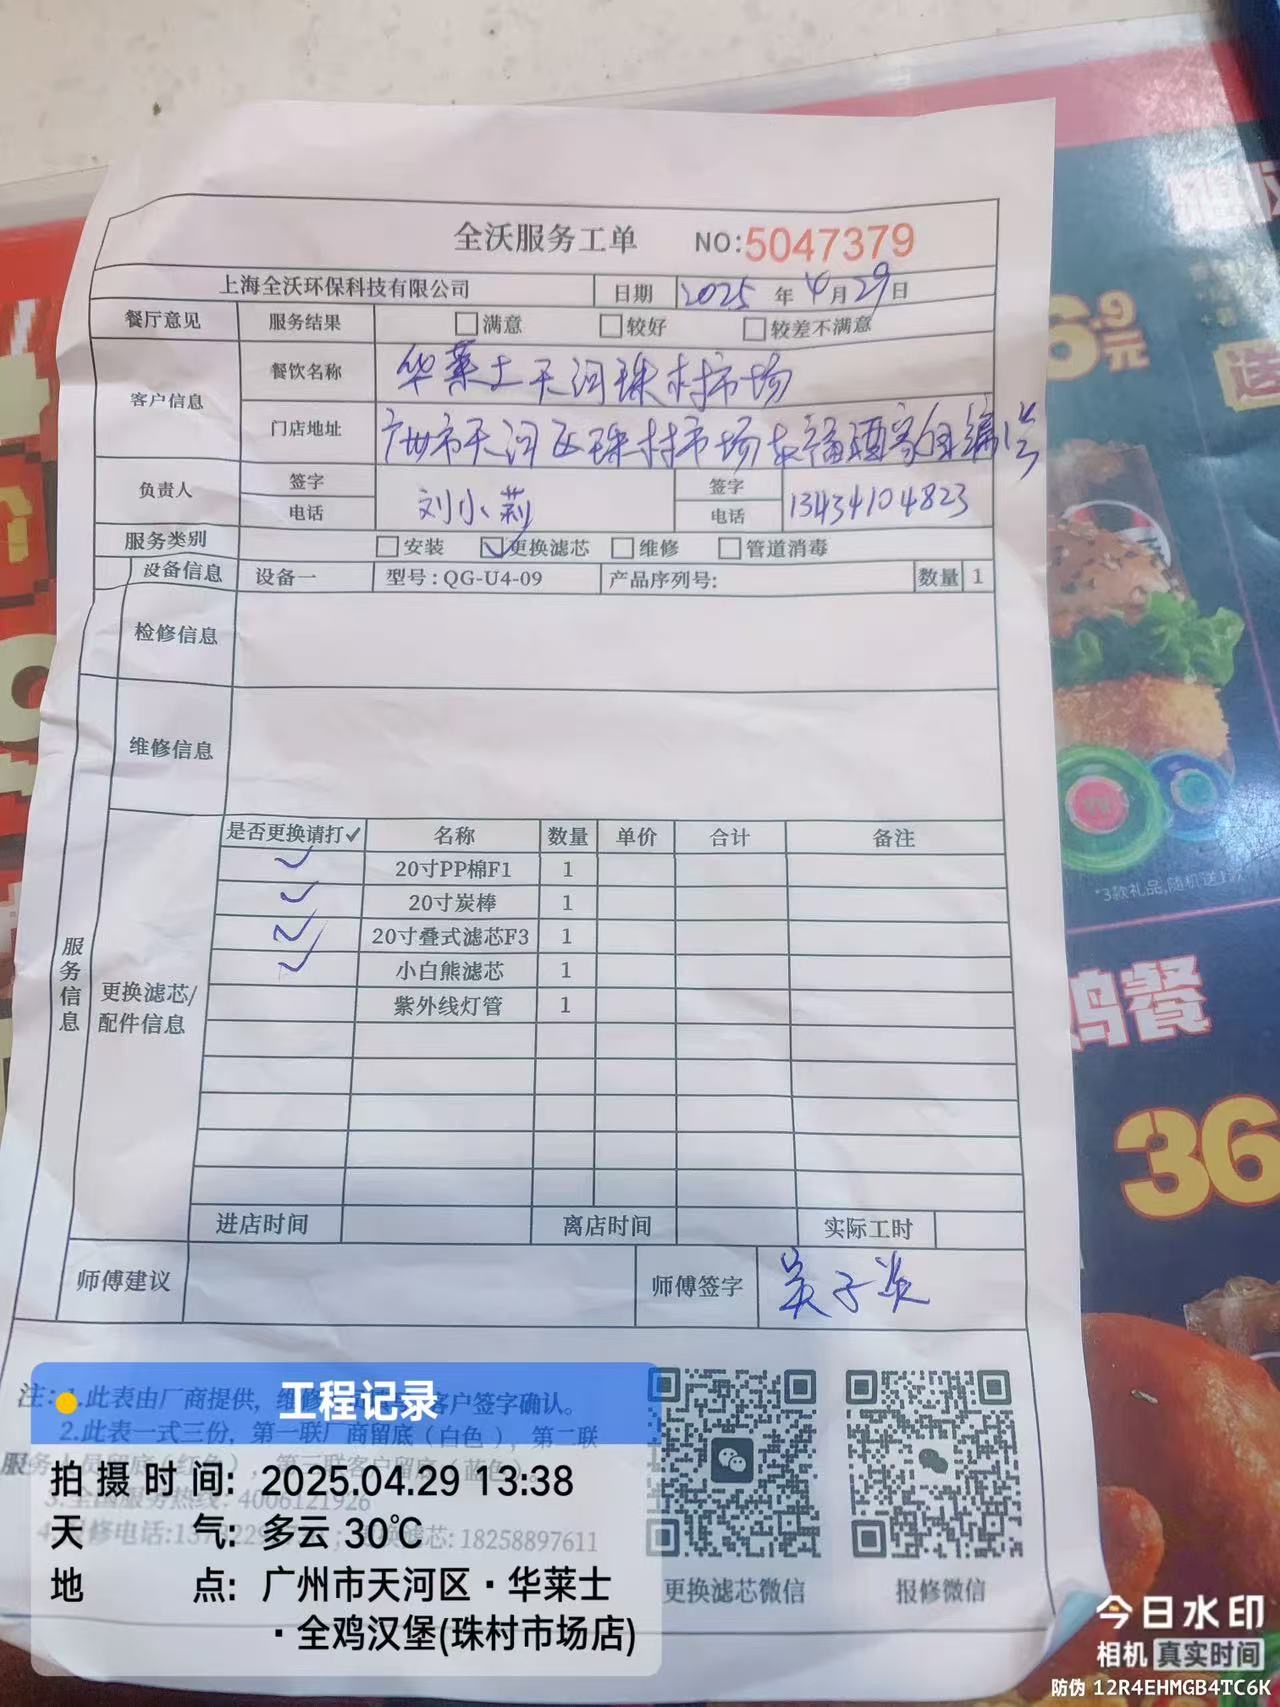 全沃服务工单 NO:5047379
上海全沃环保科技有限公司 日期 2025 年 4 月 29 日
餐厅意见 服务结果 □满意 □较好 □较差不满意
客户信息 餐饮名称 华莱士天河珠村市场
门店地址 广州市天河区珠村市场东福酒家自编1号
负责人 签字 刘小莉 签字
电话 电话 13434104823
服务类别 □安装 ☑更换滤芯 □维修 □管道消毒
设备信息 设备一 型号:QG-U4-09 产品序列号: 数量 1
检修信息
维修信息
服务信息
更换滤芯/
配件信息
是否更换请打✓ 名称 数量 单价 合计 备注
✓ 20寸PP棉F1 1
✓ 20寸炭棒 1
✓ 20寸叠式滤芯F3 1
✓ 小白熊滤芯 1
紫外线灯管 1
进店时间 离店时间 实际工时
师傅建议 师傅签字 吴子炎
注: 1.此表由厂商提供，维修 客户签字确认。
2.此表一式三份，第一联厂商留底（白色），第二联
服务 员留底（红色），第三联客户留底（蓝色）。
3.全国服务热线: 4006121926
更换滤芯: 18258897611
更换滤芯微信 报修微信
工程记录
拍摄时间: 2025.04.29 13:38
天气: 多云 30℃
地点: 广州市天河区·华莱士
·全鸡汉堡(珠村市场店)
6.9元
送
*3款礼品,随机送1款
鸡餐
36
今日水印
相机 真实时间
防伪 12R4EHMGB4TC6K